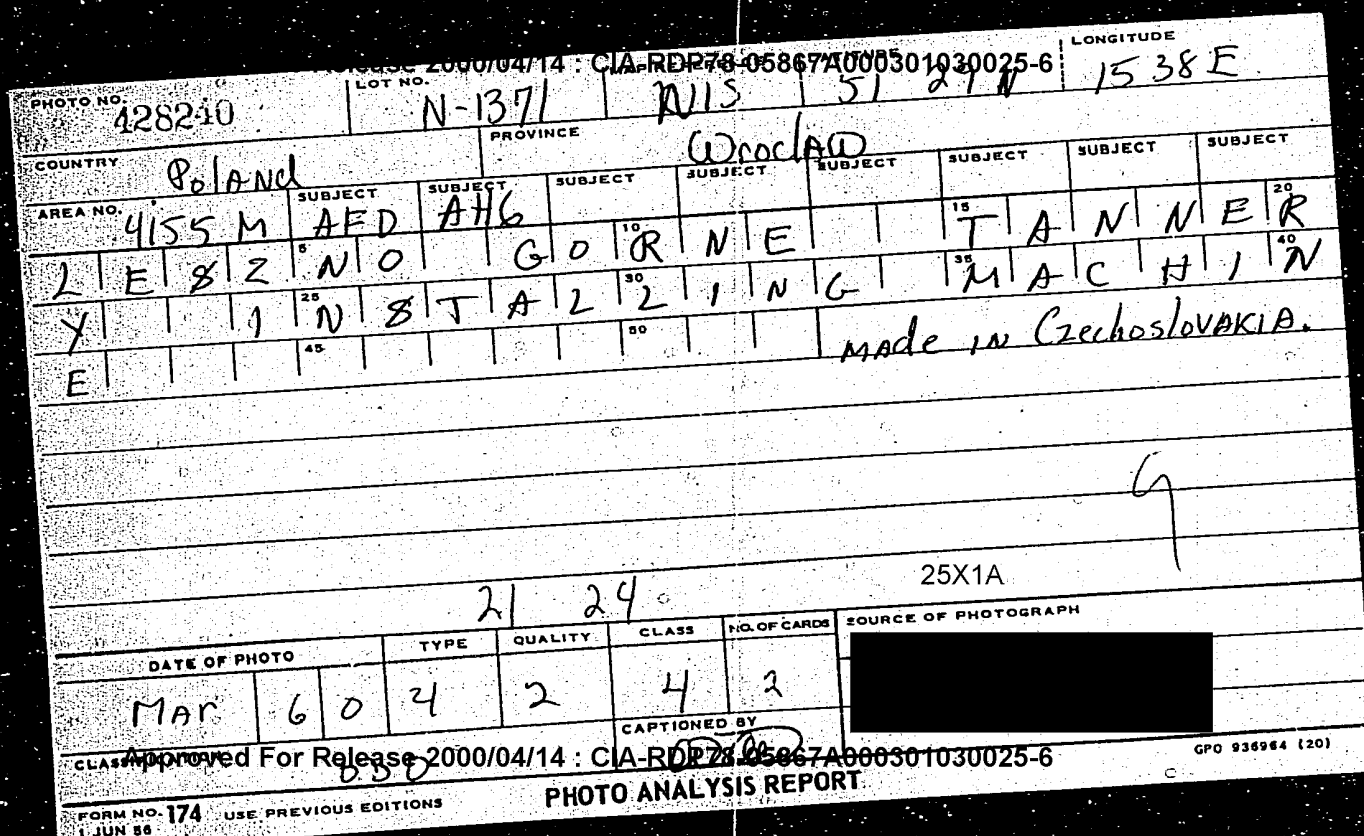 Release 2000/04/14 : CIA-RDP78-05867A000301030025-6
PHOTO NO. 428240 LOT NO. N-1371 NIS 51 29 N LONGITUDE 15 38 E
COUNTRY Poland PROVINCE Wroclaw
AREA NO. 4155 M SUBJECT AFD SUBJECT AH6 SUBJECT SUBJECT SUBJECT SUBJECT SUBJECT SUBJECT
L E 8 Z 5 N O G O 10 R N E 15 T A N N E 20 R
Y 1 25 N 8 T A L 30 L I N G 35 M A C H I 40 N
E 45 50 made in Czechoslovakia.
25X1A
21 24
DATE OF PHOTO TYPE QUALITY CLASS NO. OF CARDS SOURCE OF PHOTOGRAPH
Mar 6 0 4 2 4 2
CAPTIONED BY
Approved For Release 2000/04/14 : CIA-RDP78-05867A000301030025-6
GPO 936964 (20)
FORM NO. 174 USE PREVIOUS EDITIONS PHOTO ANALYSIS REPORT
1 JUN 56